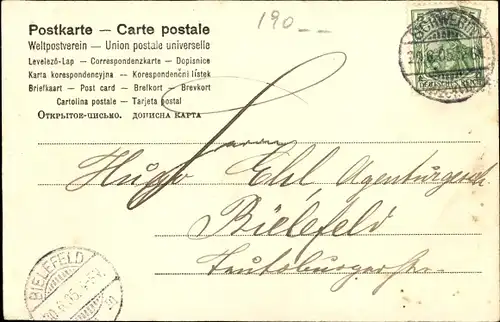 190--
Postkarte — Carte postale
Weltpostverein — Union postale universelle
Levelező-Lap — Correspondenzkarte — Dopisnice
Karta korespondencyjna — Korespondenční lístek
Briefkaart — Post card — Brefkort — Brevkort
Cartolina postale — Tarjeta postal
Открытое-письмо. дописна карта
SCHWERIN
Herrn
Hugo Ehl, Agenturgesch.
Bielefeld
Teutoburgerstr.
BIELEFELD
20.6.05.